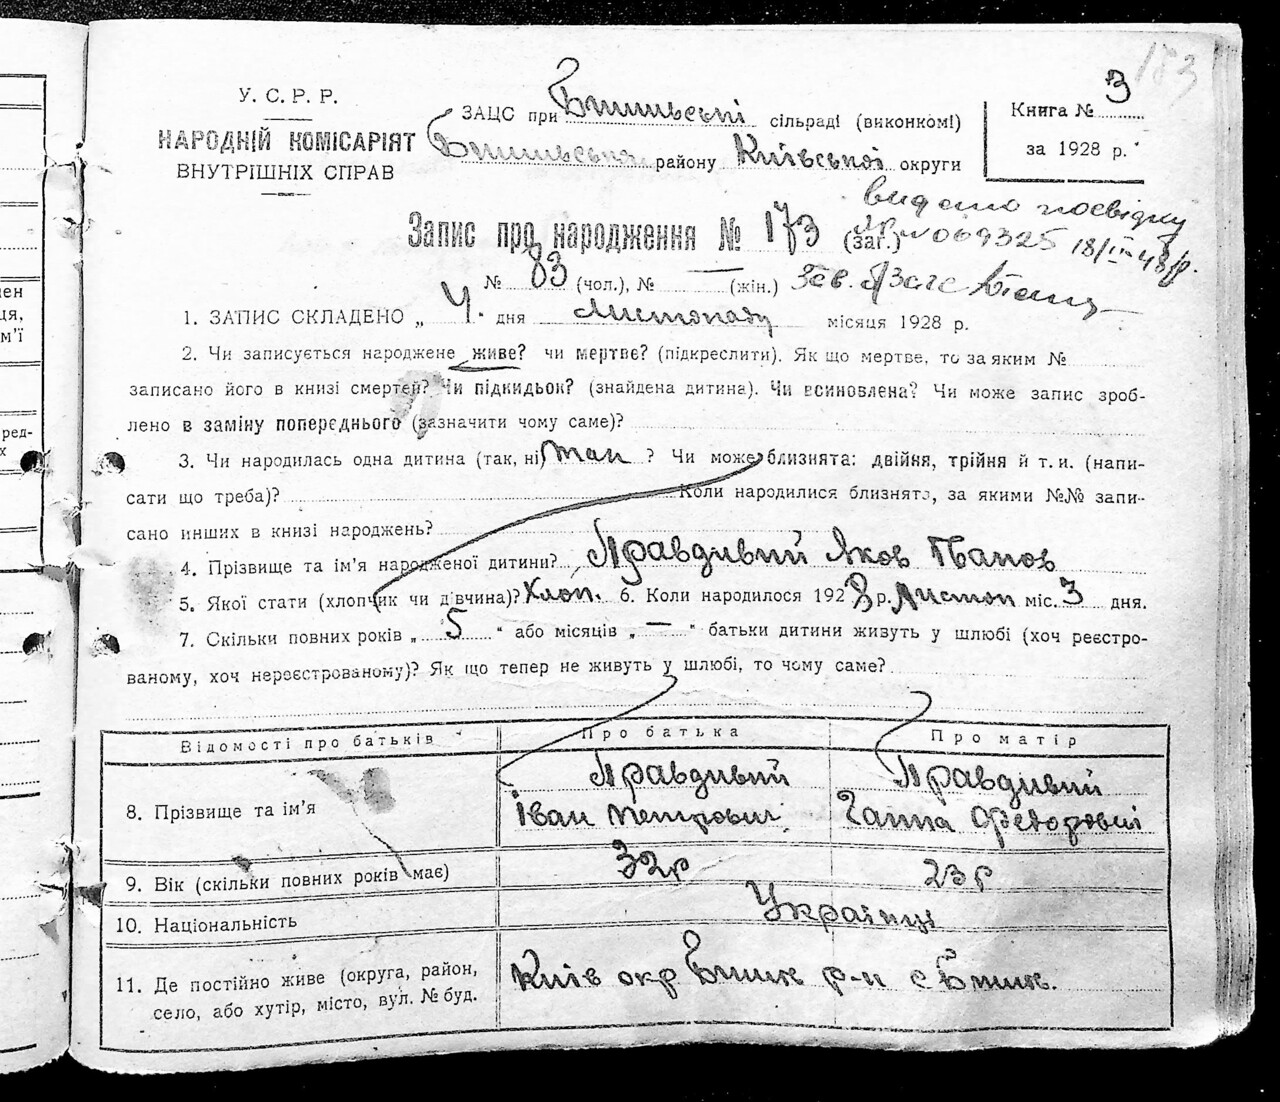 183
У. С. Р. Р.
НАРОДНІЙ КОМІСАРІЯТ
ВНУТРІШНІХ СПРАВ
ЗАЦС при сільраді (виконкомі)
району Київської округи
Книга № 3
за 1928 р.
видано посвідку
Запис про народження № 173 (заг.)
№ 069325 18/ІІІ-48р.
№ 83 (чол.), № — (жін.) Зав.
1. ЗАПИС СКЛАДЕНО „ 4. дня Листопаду місяця 1928 р.
2. Чи записується народжене живе? чи мертве? (підкреслити). Як що мертве, то за яким №
записано його в книзі смертей? Чи підкидьок? (знайдена дитина). Чи всиновлена? Чи може запис зроб-
лено в заміну попереднього (зазначити чому саме)?
3. Чи народилась одна дитина (так, ні) так ? Чи може близнята: двійня, трійня й т. и. (напи-
сати що треба)? Коли народилися близнята, за якими №№ запи-
сано инших в книзі народжень?
4. Прізвище та ім’я народженої дитини? Правдивий Яков Іванов
5. Якої стати (хлопчик чи дівчина)? Хлоп. 6. Коли народилося 1928 р. Листоп міс. 3 дня.
7. Скільки повних років „ 5 “ або місяців „ — “ батьки дитини живуть у шлюбі (хоч реєстро-
ваному, хоч нереєстрованому)? Як що тепер не живуть у шлюбі, то чому саме?
Відомості про батьків
Про батька
Про матір
8. Прізвище та ім’я
Правдивий
Іван Петрович
Правдивий
Ганна Федоровна
9. Вік (скільки повних років має)
32р
23р
10. Національність
Українці
11. Де постійно живе (округа, район,
село, або хутір, місто, вул. № буд.
Київ окр р-н с
ред-